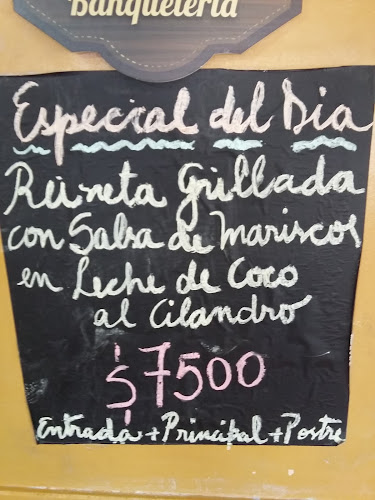 Banquetería
Especial del Dia
Reineta Grillada
con Salsa de Mariscos
en Leche de Coco
al Cilandro
$7500
Entrada + Principal + Postre